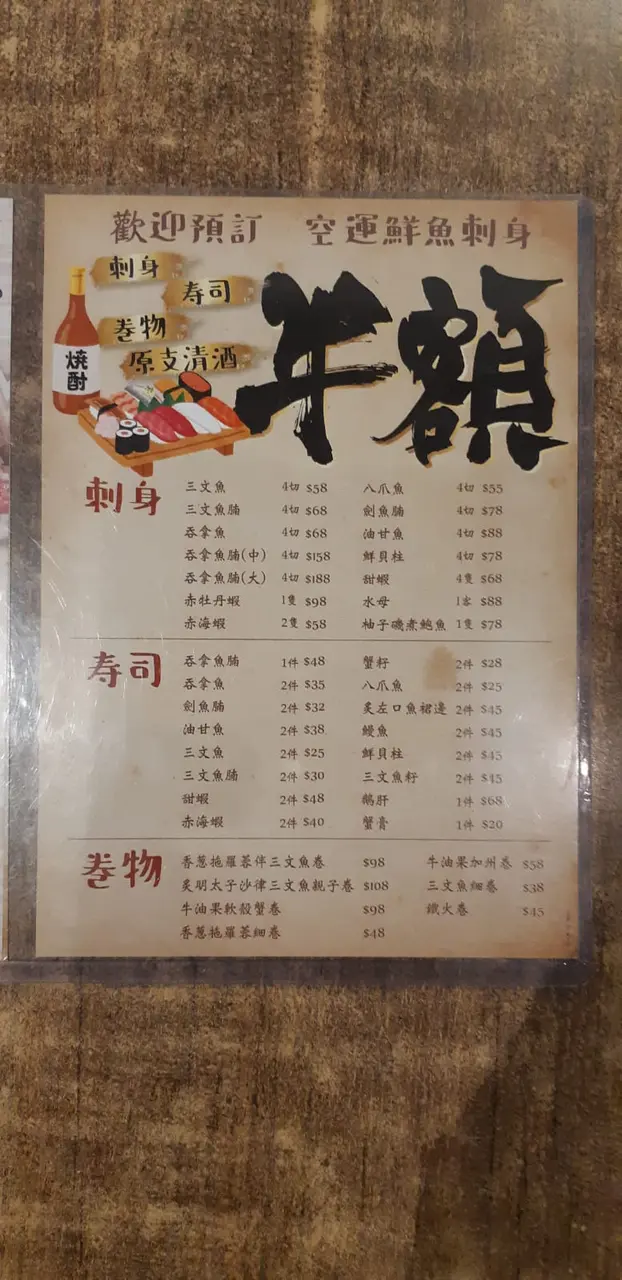 歡迎預訂 空運鮮魚刺身
刺身
寿司
卷物
原支清酒
焼酎
牛額
刺身
三文魚 4切 $58 八爪魚 4切 $55
三文魚腩 4切 $68 劍魚腩 4切 $78
吞拿魚 4切 $68 油甘魚 4切 $88
吞拿魚腩(中) 4切 $158 鮮貝柱 4切 $78
吞拿魚腩(大) 4切 $188 甜蝦 4隻 $68
赤牡丹蝦 1隻 $98 水母 1客 $88
赤海蝦 2隻 $58 柚子磯煮鮑魚 1隻 $78
寿司
吞拿魚腩 1件 $48 蟹籽 2件 $28
吞拿魚 2件 $35 八爪魚 2件 $25
劍魚腩 2件 $32 炙左口魚裙邊 2件 $45
油甘魚 2件 $38 鰻魚 2件 $45
三文魚 2件 $25 鮮貝柱 2件 $45
三文魚腩 2件 $30 三文魚籽 2件 $45
甜蝦 2件 $48 鵝肝 1件 $68
赤海蝦 2件 $40 蟹膏 1件 $20
卷物
香蔥拖羅蓉伴三文魚卷 $98 牛油果加州卷 $58
炙明太子沙律三文魚親子卷 $108 三文魚細卷 $38
牛油果軟殼蟹卷 $98 鐵火卷 $45
香蔥拖羅蓉細卷 $48